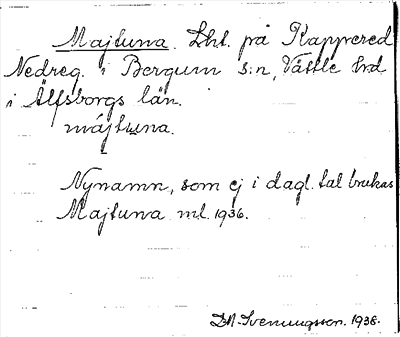 Majtuna. Lht. på Kappered
Nedreg. i Bergum s:n, Vättle hrd
i Älfsborgs län.
májtuna.
Nynamn, som ej i dagl. tal brukas
Majtuna ml. 1936.
D.A. Svenungsson. 1936.